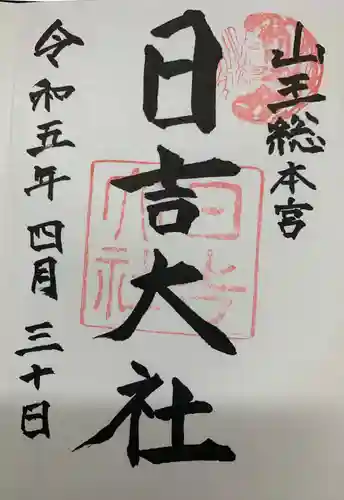 山王総本宮
日吉大社
令和五年四月三十日
日吉大社